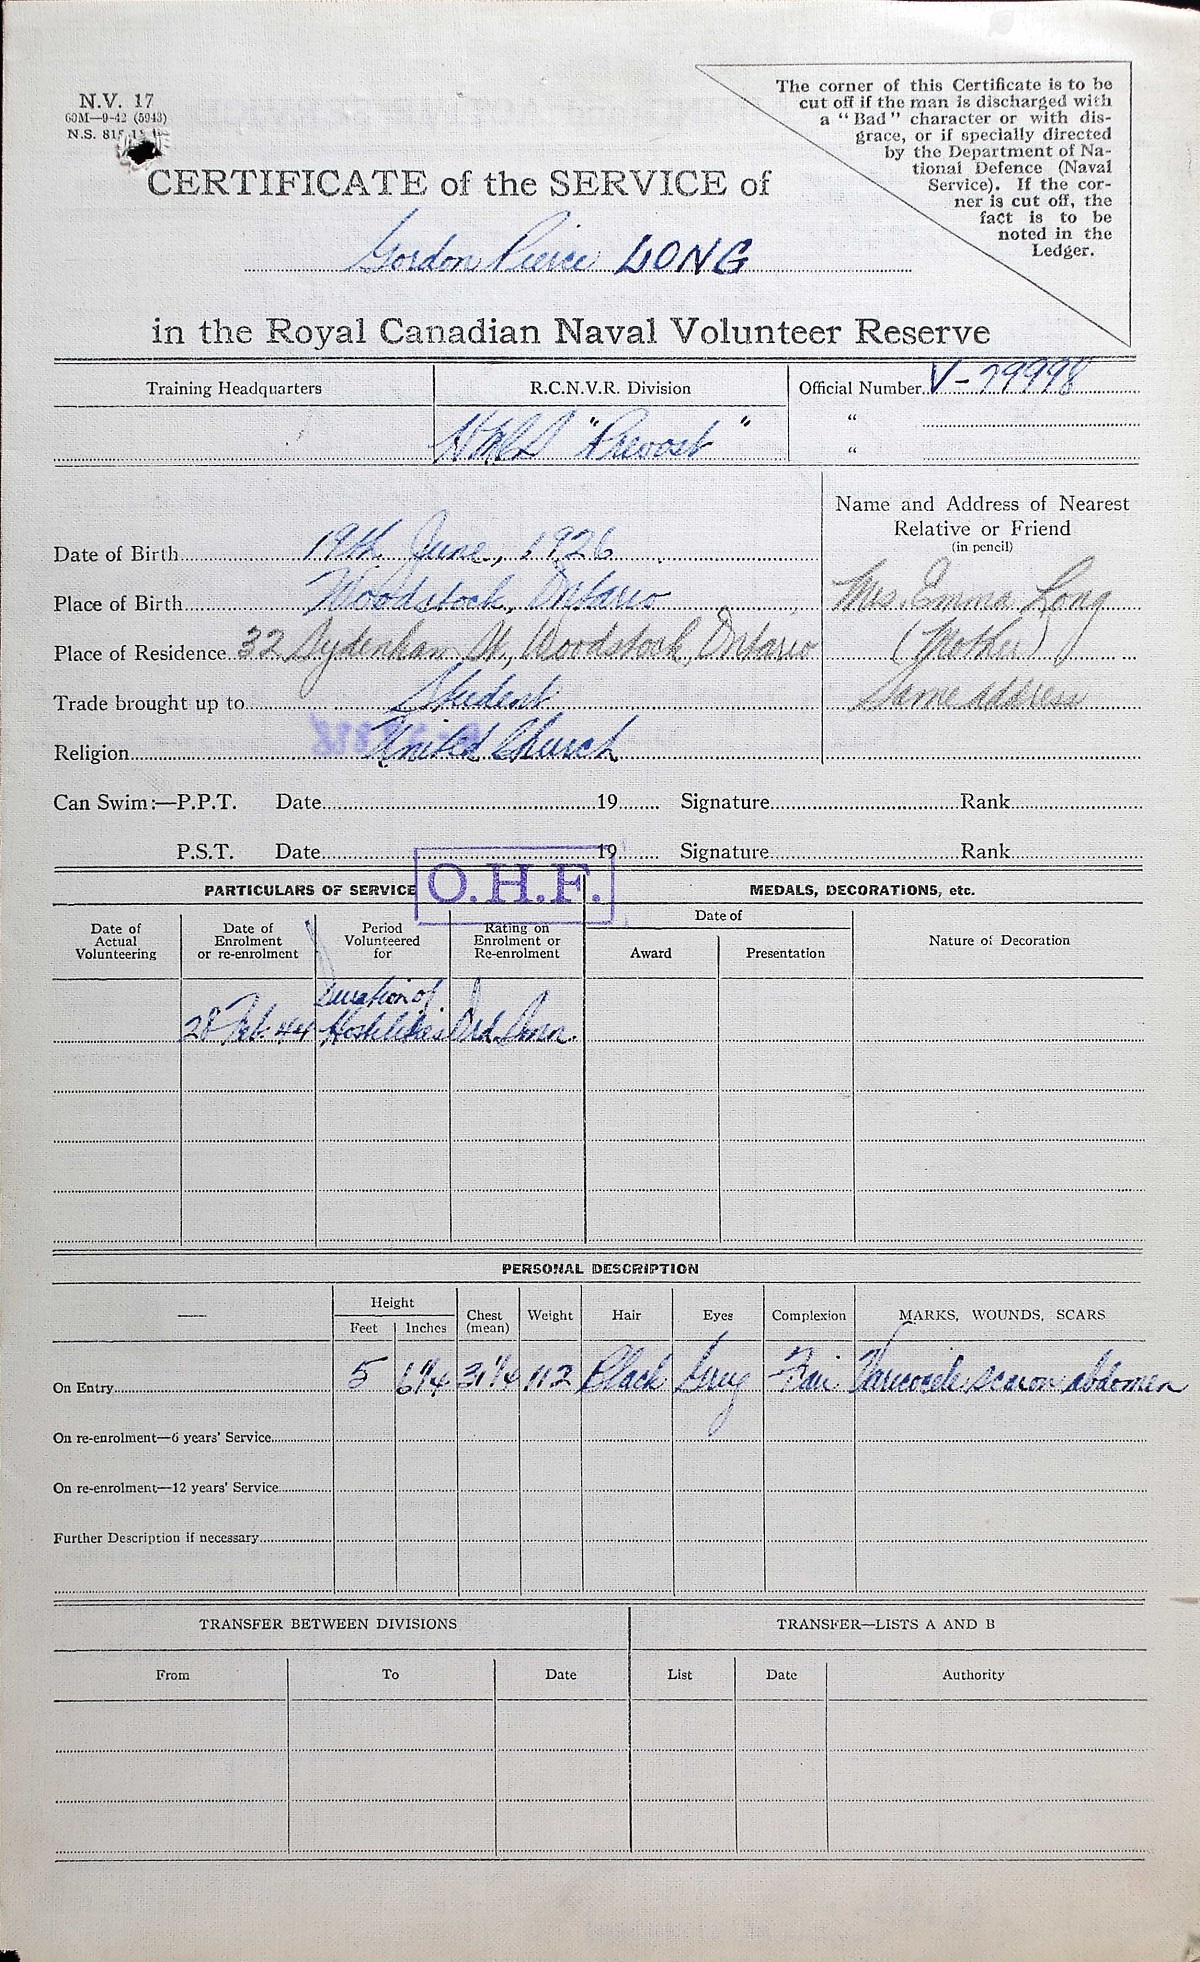 N.V. 17
60M—9-42 (5943)
N.S. 815
The corner of this Certificate is to be
cut off if the man is discharged with
a "Bad" character or with dis-
grace, or if specially directed
by the Department of Na-
tional Defence (Naval
Service). If the cor-
ner is cut off, the
fact is to be
noted in the
Ledger.
CERTIFICATE of the SERVICE of
Gordon Pierce LONG
in the Royal Canadian Naval Volunteer Reserve
Training Headquarters R.C.N.V.R. Division Official Number V-79998
HMCS "Prevost" "
"
Name and Address of Nearest
Relative or Friend
(in pencil)
Date of Birth 19th June, 1926
Place of Birth Woodstock, Ontario Mrs. Emma Long
Place of Residence 32 Sydenham St., Woodstock, Ontario (Mother)
Trade brought up to Student Same address
Religion United Church
Can Swim:—P.P.T. Date 19 Signature Rank
P.S.T. Date 19 Signature Rank
O.H.F.
PARTICULARS OF SERVICE MEDALS, DECORATIONS, etc.
Date of Actual Volunteering Date of Enrolment or re-enrolment Period Volunteered for Rating on Enrolment or Re-enrolment Date of Award Presentation Nature of Decoration
28 Feb. 44 Duration of Hostilities Ord. Smn.
PERSONAL DESCRIPTION
Height Chest (mean) Weight Hair Eyes Complexion MARKS, WOUNDS, SCARS
Feet Inches
On Entry 5 6¼ 31¼ 112 Black Grey Fair Varicocele scar on abdomen
On re-enrolment—6 years' Service
On re-enrolment—12 years' Service
Further Description if necessary
TRANSFER BETWEEN DIVISIONS TRANSFER—LISTS A AND B
From To Date List Date Authority